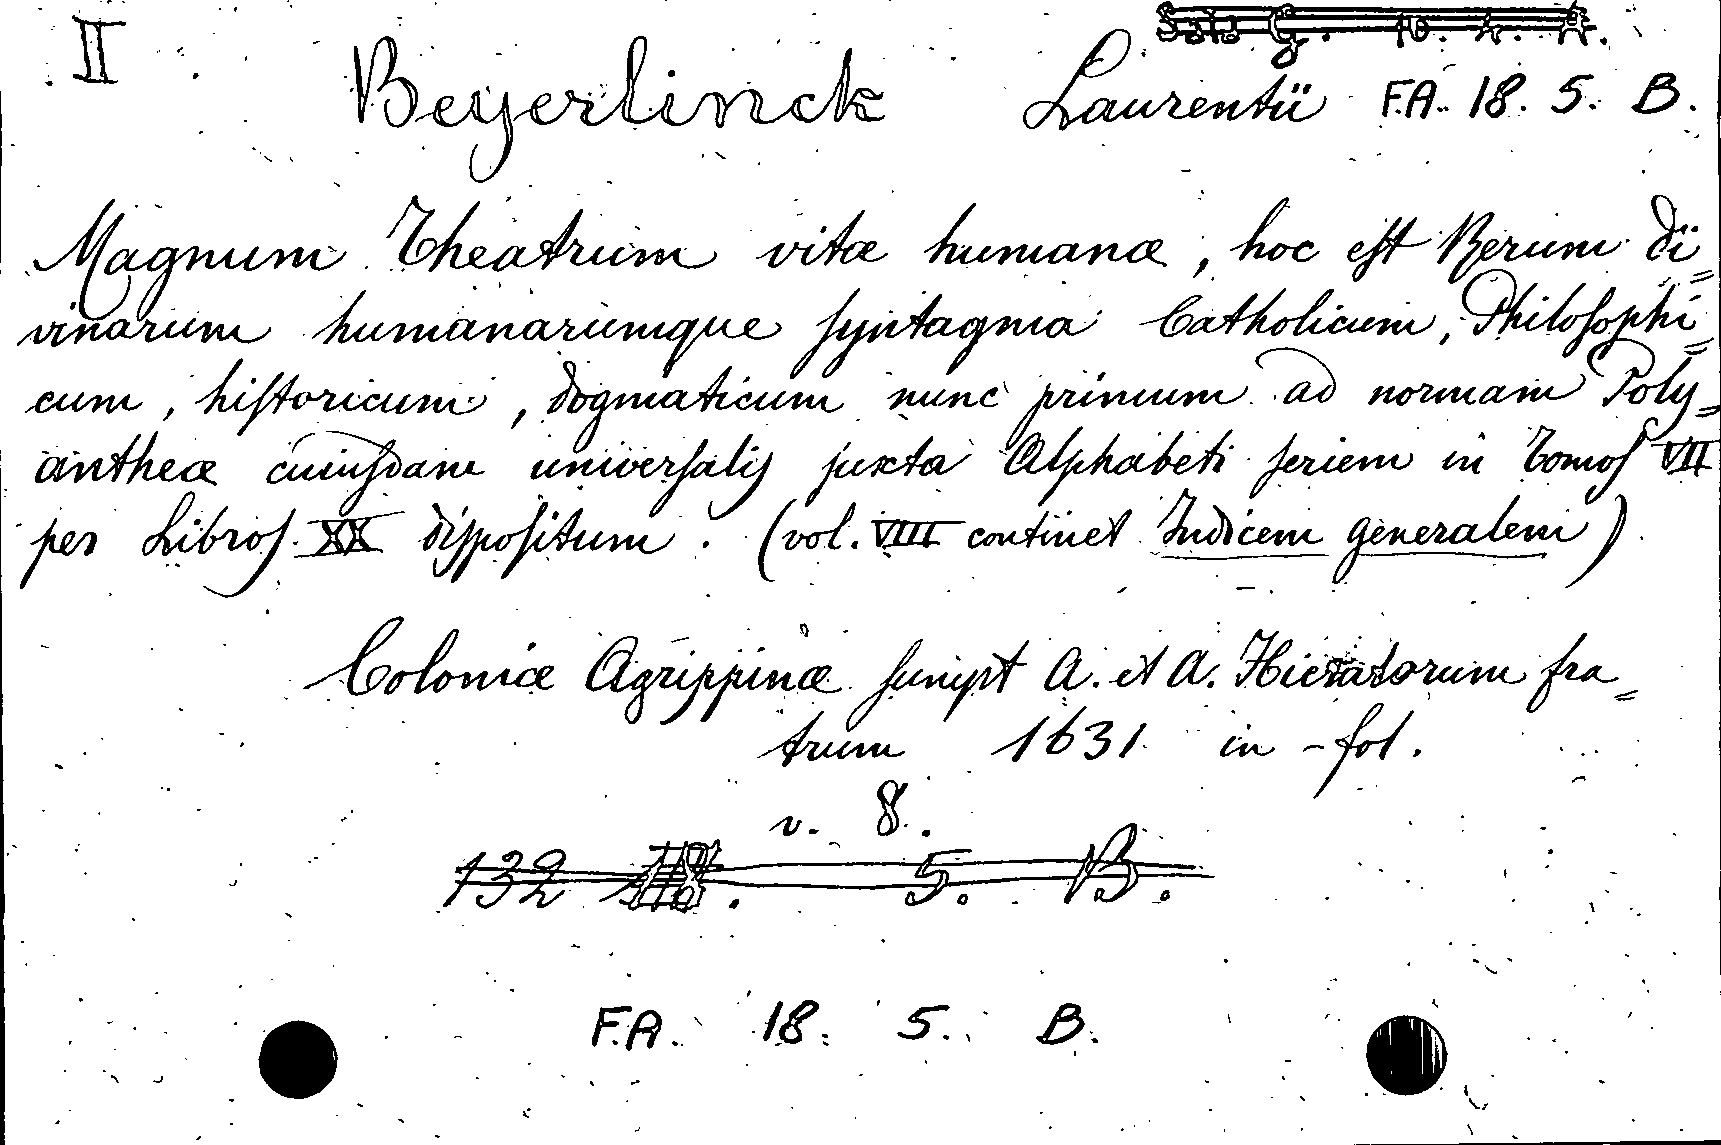 II
Beyerlinck Laurentii F.A. 18. 5. B.
Magnum Theatrum vitæ humanæ, hoc est Rerum di=
vinarum humanarumque syntagma Catholicum, Philosophi=
cum, historicum, dogmaticum nunc primum ad normam Poly=
antheæ cuiusdam universalis juxta Alphabeti seriem in Tomos VII
per Libros XX dispositum. (vol. VIII continet Indicem generalem)
Coloniæ Agrippinæ sumpt A. et A. Hieratorum fra=
trum 1631 in-fol.
v. 8.
132 5. B.
F.A. 18. 5. B.